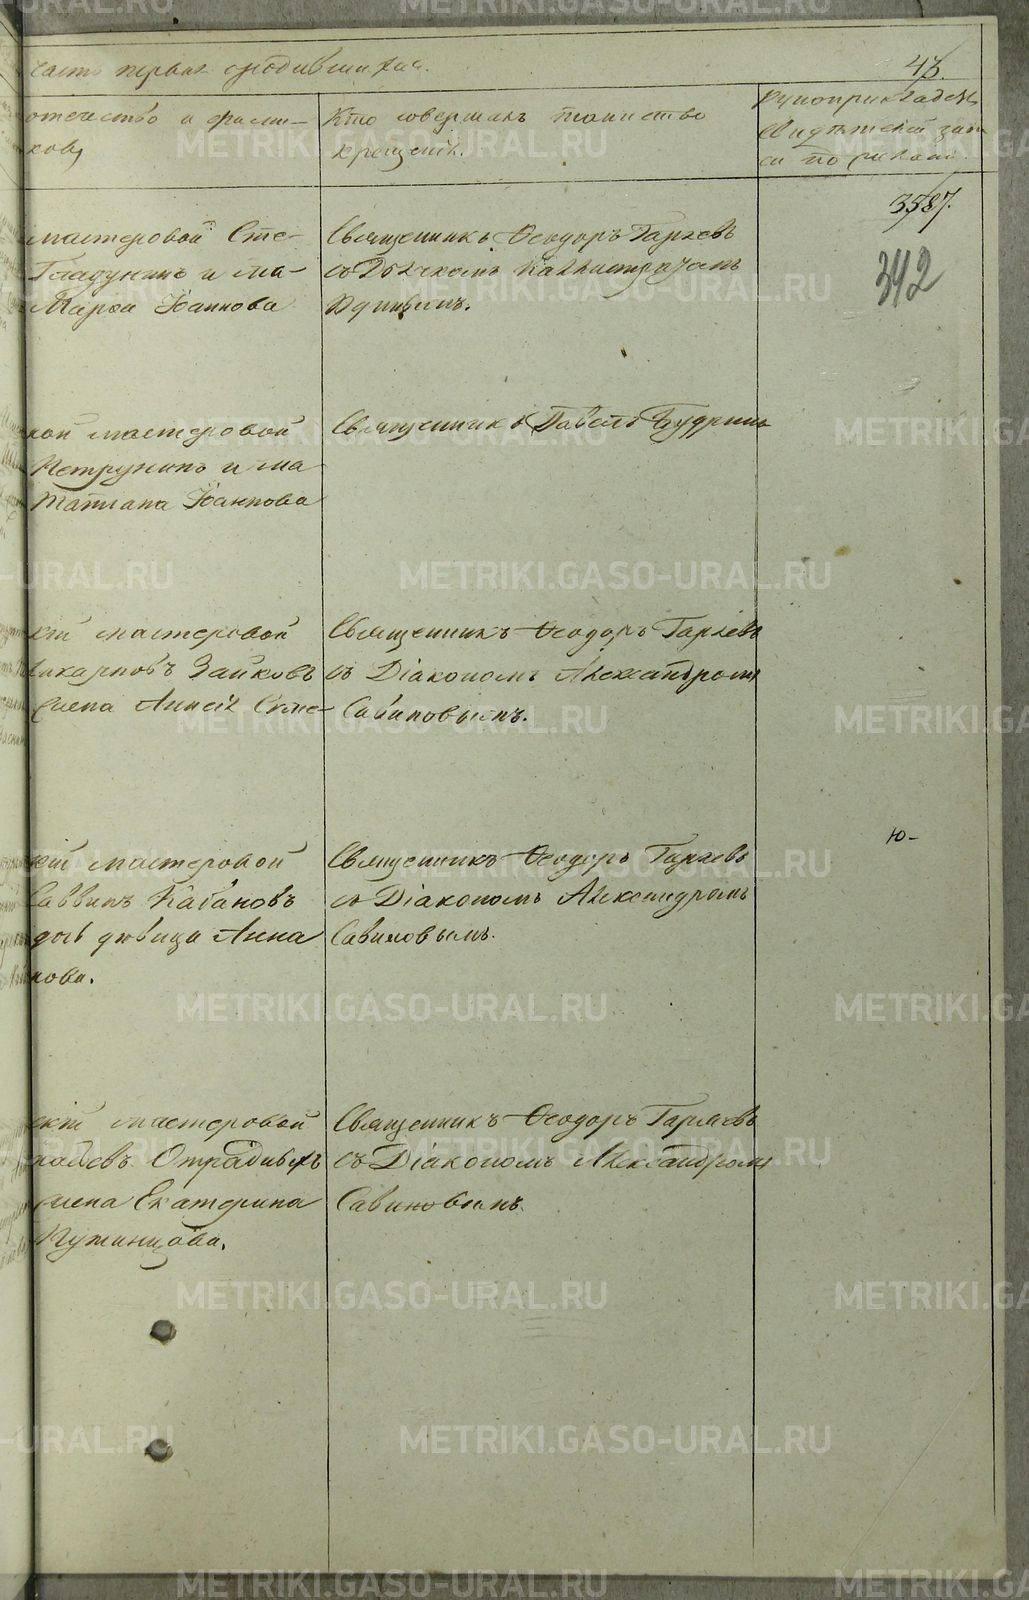 часть первая о родившихся.
43.
отечество и фами-
ков,
Кто совершалъ таинство
крещенія.
Рукоприкладство
свидѣтелей запи
си по желанію
3387.
342
мастеровой Сте-
Гладунинъ и за-
Марѳа Іоаннова
Священникъ Ѳеодоръ Гаряевъ
съ Дьячкомъ Каллистратомъ
кой мастеровой
Петрунинъ и за
Татіана Іоаннова
Священникъ Павелъ Будринъ
кій мастеровой
ликарповъ Зайковъ
жена Анисія Симе-
Священникъ Ѳеодоръ Гаряевъ
съ Діакономъ Александромъ
Савиновымъ.
кій мастеровой
Саввинъ Кабановъ
дочь дѣвица Анна
нова.
Священникъ Ѳеодоръ Гаряевъ
съ Діакономъ Александромъ
Савиновымъ.
Ю-
скій мастеровой
Отрадныхъ
жена Екатерина
Пужинцова.
Священникъ Ѳеодоръ Гаряевъ
съ Діакономъ Александромъ
Савиновымъ.
METRIKI.GASO-URAL.RU